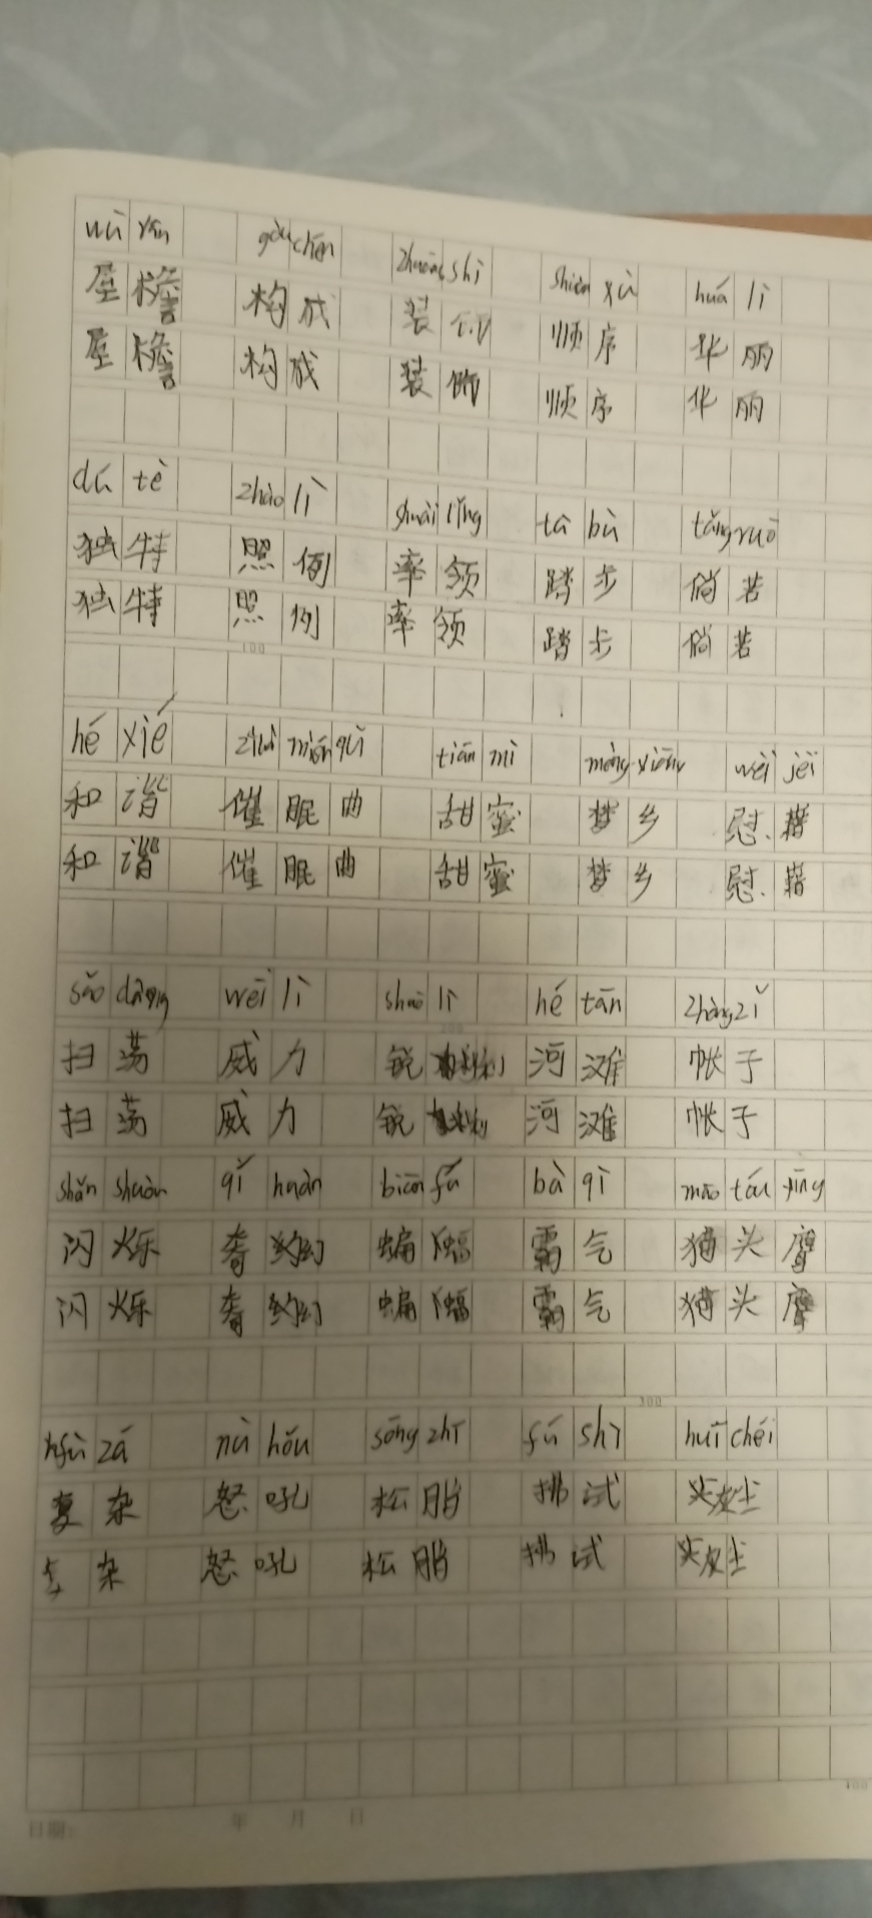 wū yán gòu chén zhuāng shì shùn xù huá lì
屋檐 构成 装饰 顺序 华丽
屋檐 构成 装饰 顺序 华丽
dú tè zhào lì shuài lǐng tà bù tǎng ruò
独特 照例 率领 踏步 倘若
独特 照例 率领 踏步 倘若
100
hé xié mián qǔ tián mì mèng xiāng wèi jèi
和谐 催眠曲 甜蜜 梦乡 慰藉
和谐 催眠曲 甜蜜 梦乡 慰藉
sǎo dàng wēi lì hé tān zhàng zǐ
200
扫荡 威力 锐利 河滩 帐子
扫荡 威力 锐利 河滩 帐子
shǎn shuò qǐ huàn biān fú bà qì māo tóu yīng
闪烁 霸气 猫头鹰
闪烁 霸气 猫头鹰
300
fù zá nù hǒu sōng zhī fú shì huī chéi
复杂 怒吼 松脂 拂试
杂 怒吼 松脂 拂试
400
日期: 年 月 日